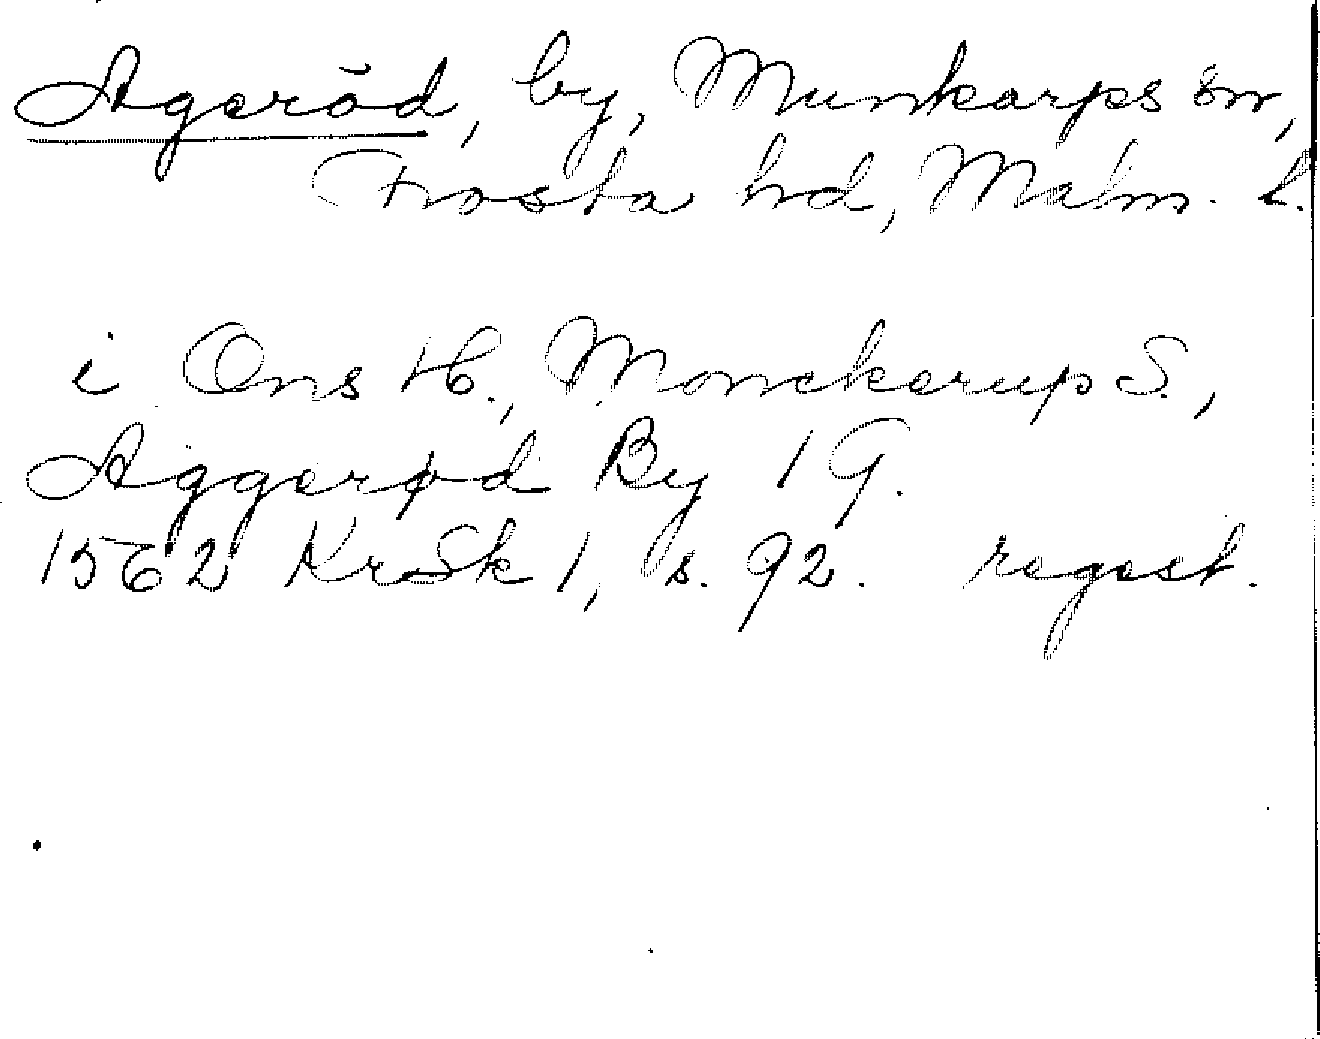 Ageröd, by, Munkarps sn,
Frosta hd, Malm. l.
i Ons H., Monckerup S.,
Aggerød By 1 G.
1562 KrSk 1, s. 92. regest.